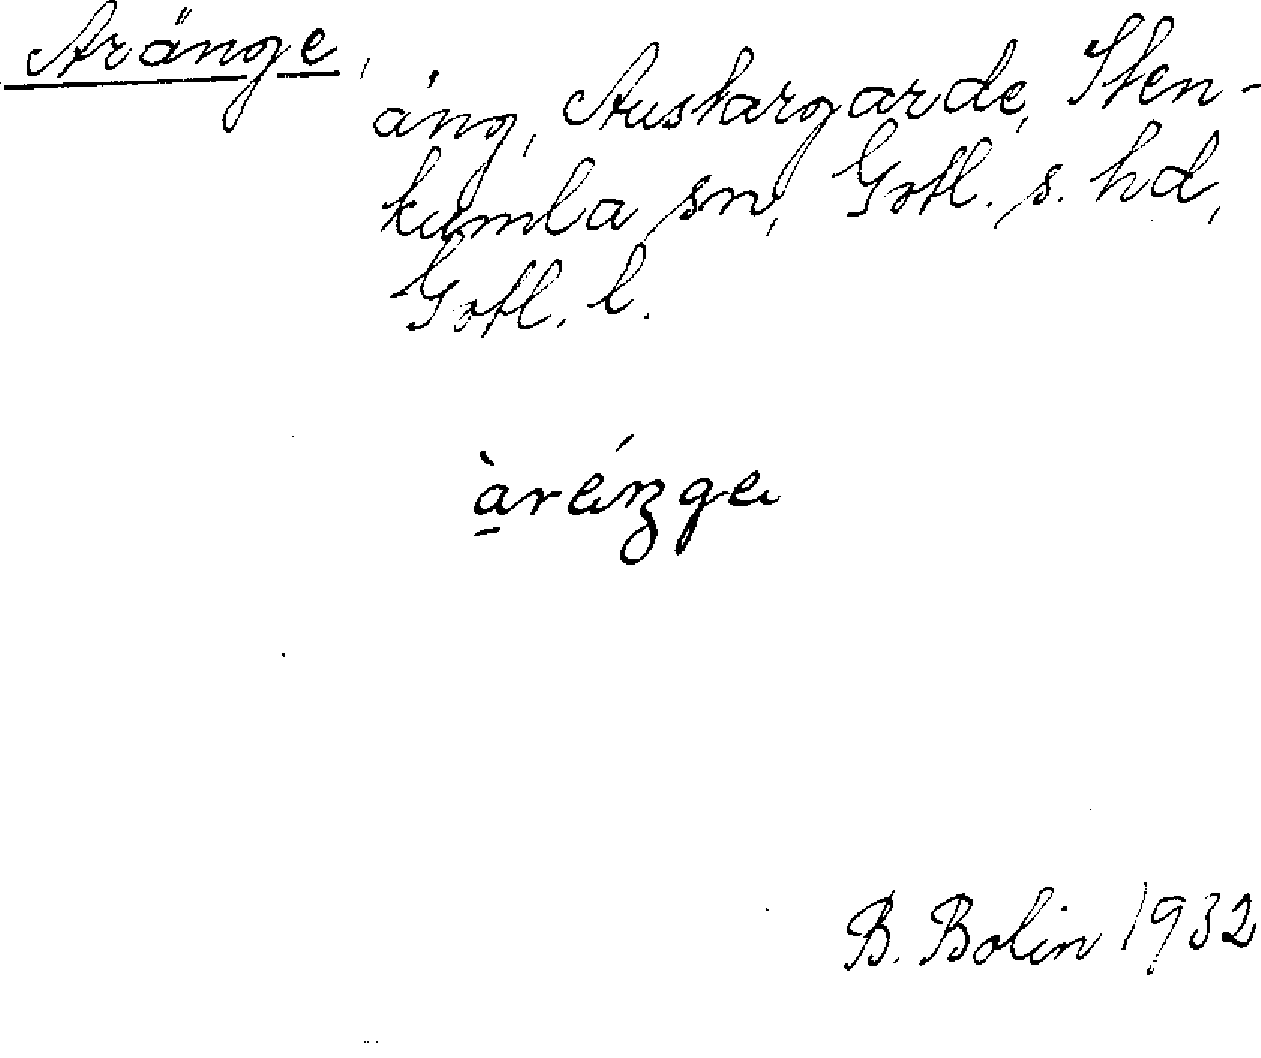 Aränge,
äng, Austargarde, Sten-
kumla sn, Gotl. s. hd,
Gotl. l.
B. Bolin 1932